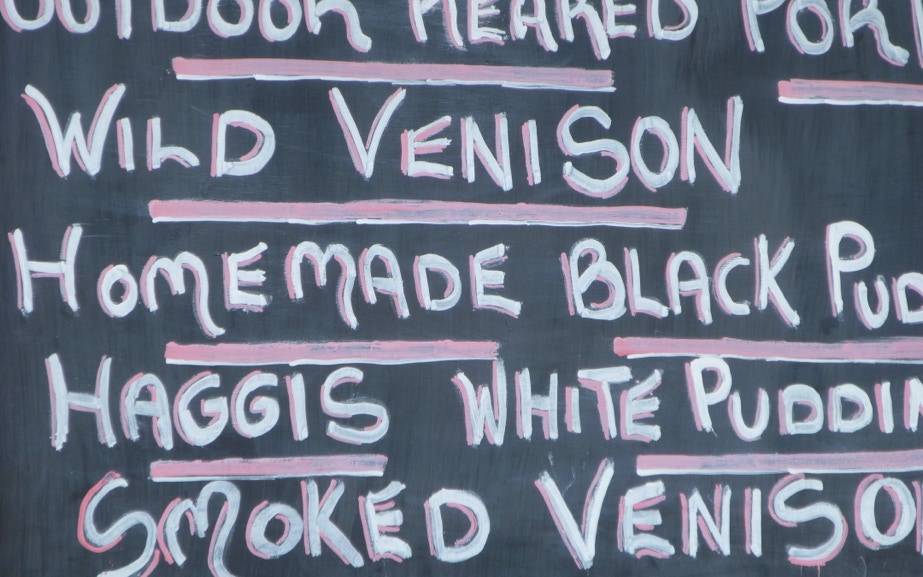 OUTDOOR REARED POR
WILD VENISON
HOMEMADE BLACK PUD
HAGGIS WHITE PUDDIN
SMOKED VENISO